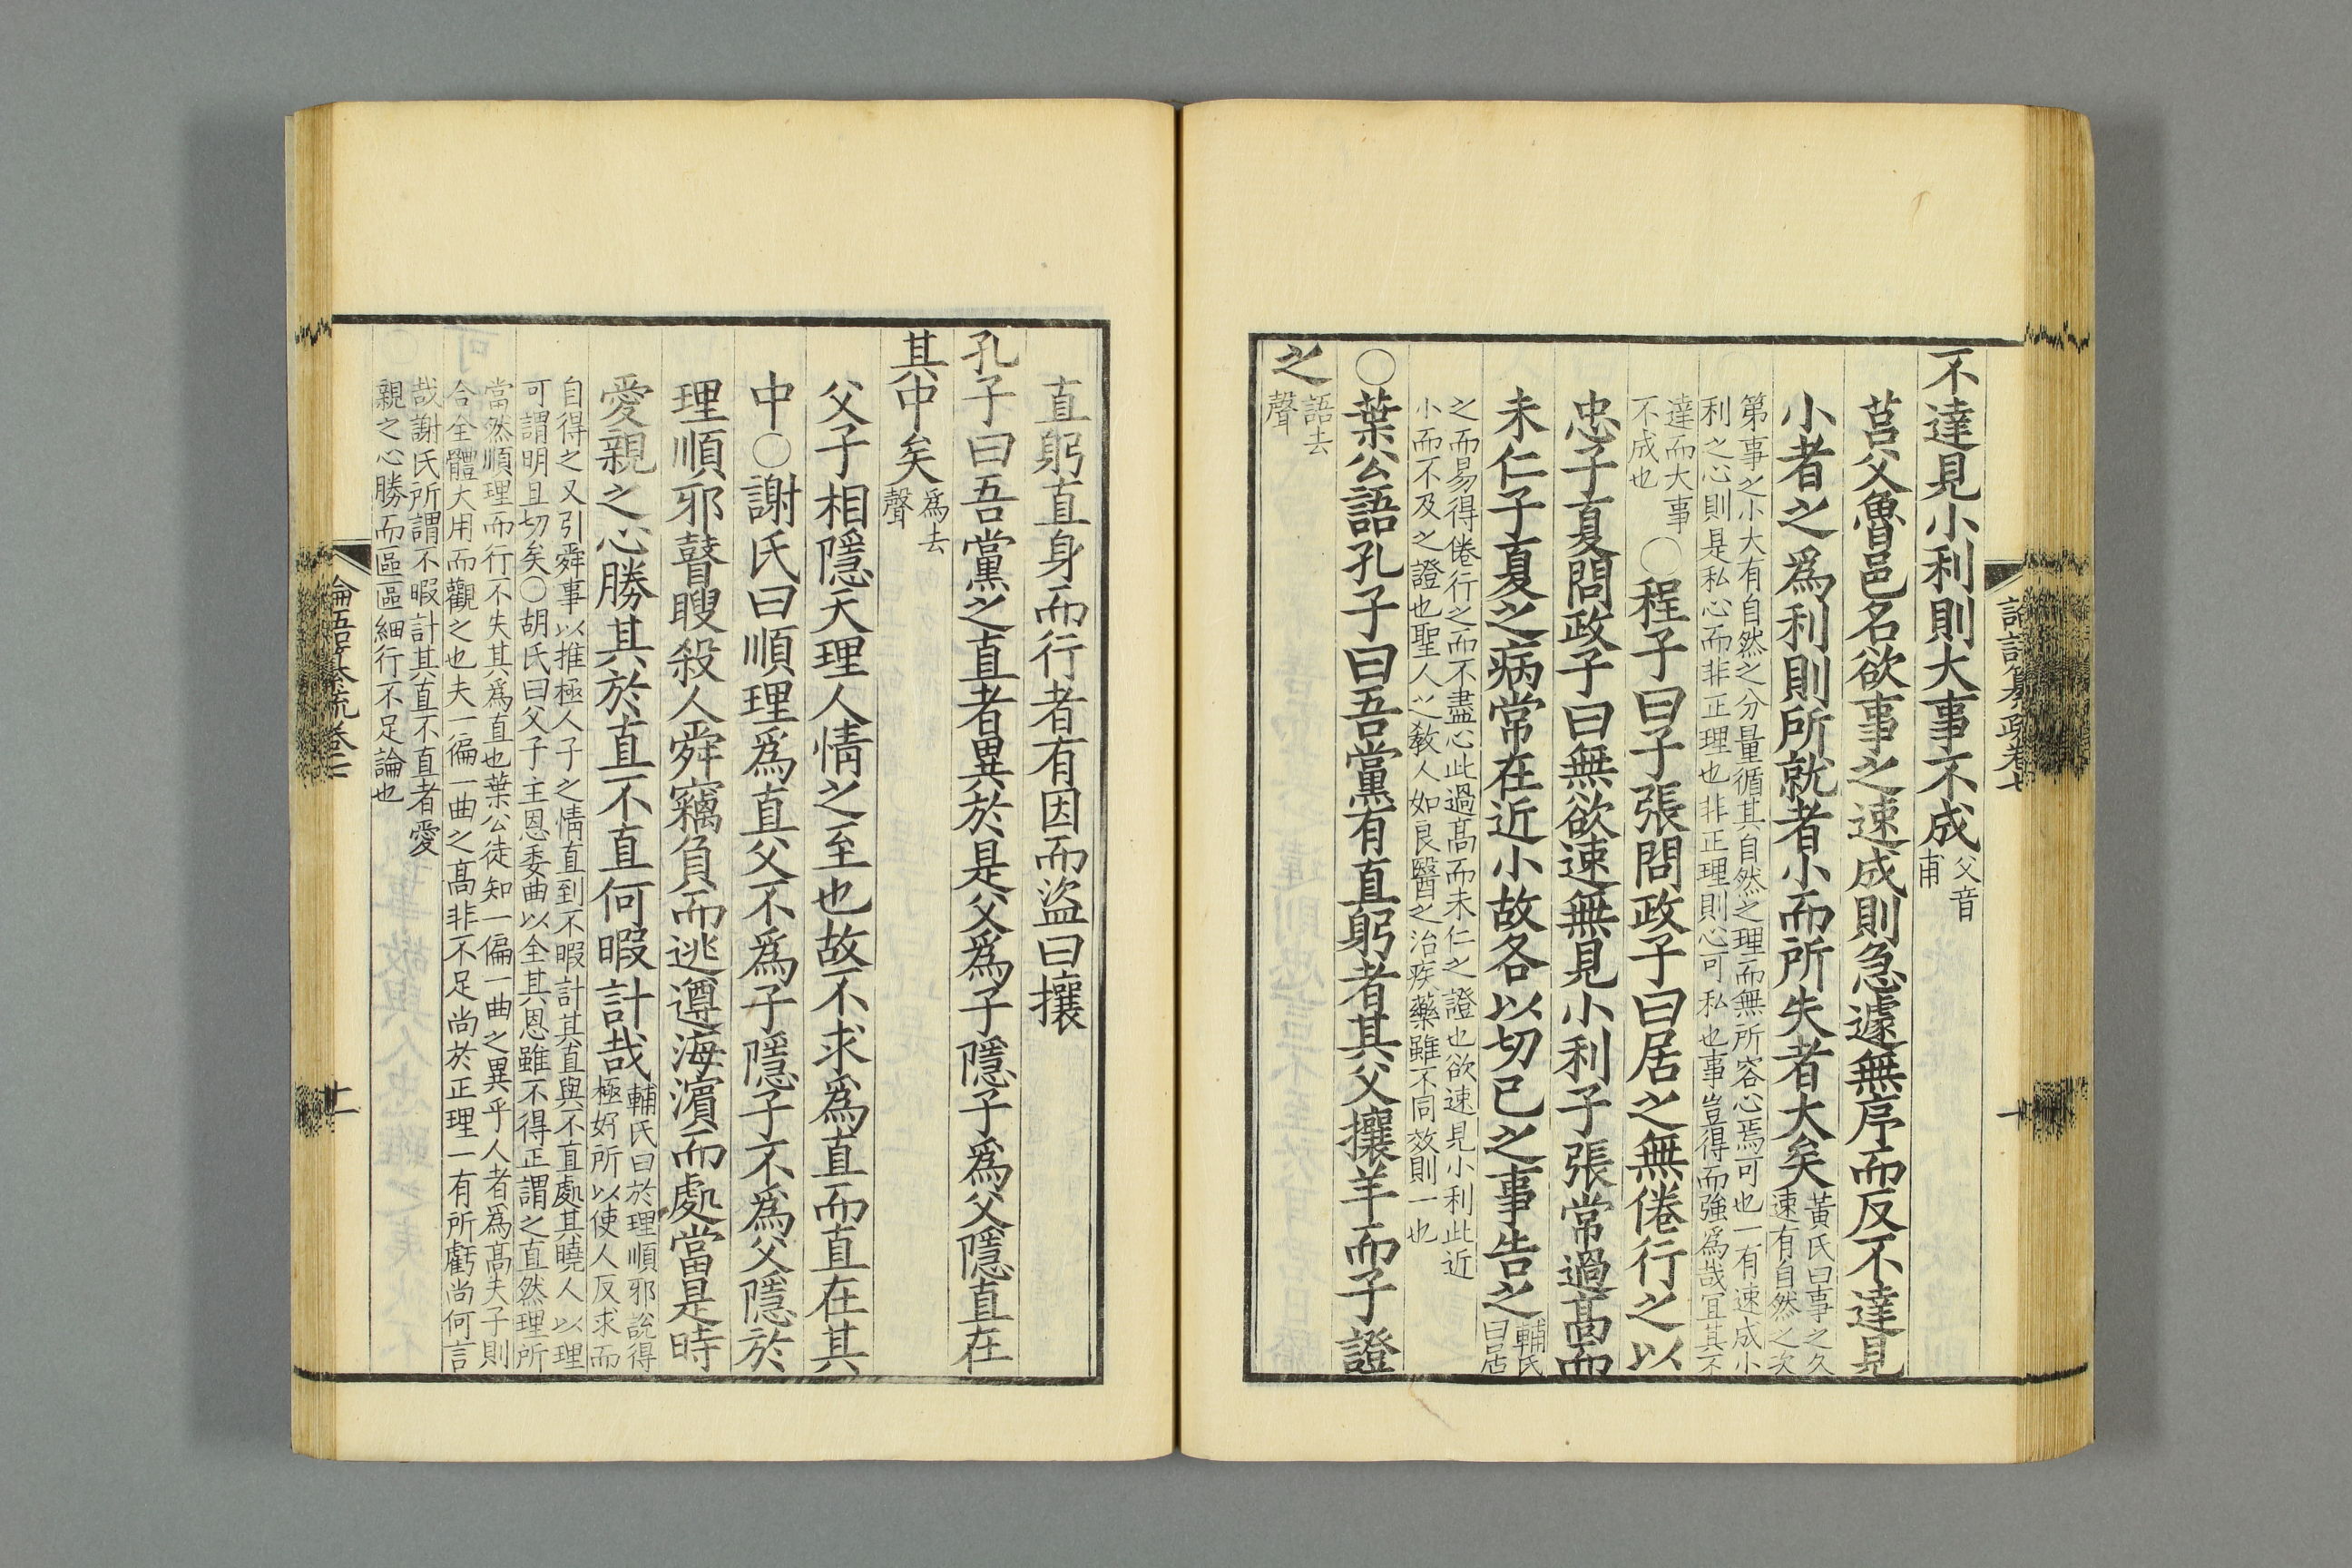 不達見小利則大事不成父音
甫
莒父魯邑名欲事之速成則急遽無序而反不達見
小者之爲利則所就者小而所失者大矣黃氏曰事之久
速有自然之次
第事之小大有自然之分量循其自然之理而無所容心焉可也一有速成小
利之心則是私心而非正理也非正理則心可私也事豈得而強爲哉冝其不
達而大事
不成也
○程子曰子張問政子曰居之無倦行之以
忠子夏問政子曰無欲速無見小利子張常過髙而
未仁子夏之病常在近小故各以切己之事告之輔氏
曰居
之而易得倦行之而不盡心此過髙而未仁之證也欲速見小利此近
小而不及之證也聖人之敎人如良醫之治疾藥雖不同效則一也
○葉公語孔子曰吾黨有直躬者其父攘羊而子證
之語去
聲
論語纂疏卷七
十
直躬直身而行者有因而盜曰攘
孔子曰吾黨之直者異於是父爲子隱子爲父隱直在
其中矣爲去
聲
父子相隱天理人情之至也故不求爲直而直在其
中○謝氏曰順理爲直父不爲子隱子不爲父隱於
理順邪瞽瞍殺人舜竊負而逃遵海濱而處當是時
愛親之心勝其於直不直何暇計哉輔氏曰於理順邪說得
極好所以使人反求而
自得之又引舜事以推極人子之情直到不暇計其直與不直處其曉人以理
可謂明且切矣○胡氏曰父子主恩委曲以全其恩雖不得正謂之直然理所
當然順理而行不失其爲直也葉公徒知一偏一曲之異乎人者爲髙夫子則
合全體大用而觀之也夫一偏一曲之髙非不足尚於正理一有所虧尚何言
哉謝氏所謂不暇計其直不直者愛
親之心勝而區區細行不足論也
論語纂疏卷七
十一